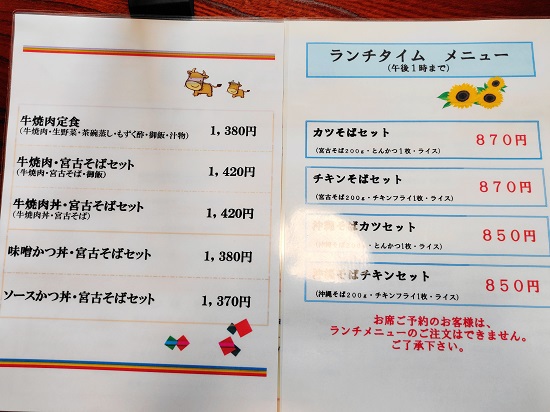 牛焼肉定食
(牛焼肉・生野菜・茶碗蒸し・もずく酢・御飯・汁物)
1,380円
牛焼肉・宮古そばセット
(牛焼肉・宮古そば・御飯)
1,420円
牛焼肉丼・宮古そばセット
(牛焼肉丼・宮古そば)
1,420円
味噌かつ丼・宮古そばセット
1,380円
ソースかつ丼・宮古そばセット
1,370円
ランチタイム メニュー
(午後1時まで)
カツそばセット
870円
(宮古そば200g・とんかつ1枚・ライス)
チキンそばセット
870円
(宮古そば200g・チキンフライ1枚・ライス)
そばカツセット
850円
・とんかつ1枚・ライス)
そばチキンセット
850円
(沖縄そば200g・チキンフライ1枚・ライス)
お席ご予約のお客様は、
ランチメニューのご注文はできません。
ご了承下さい。